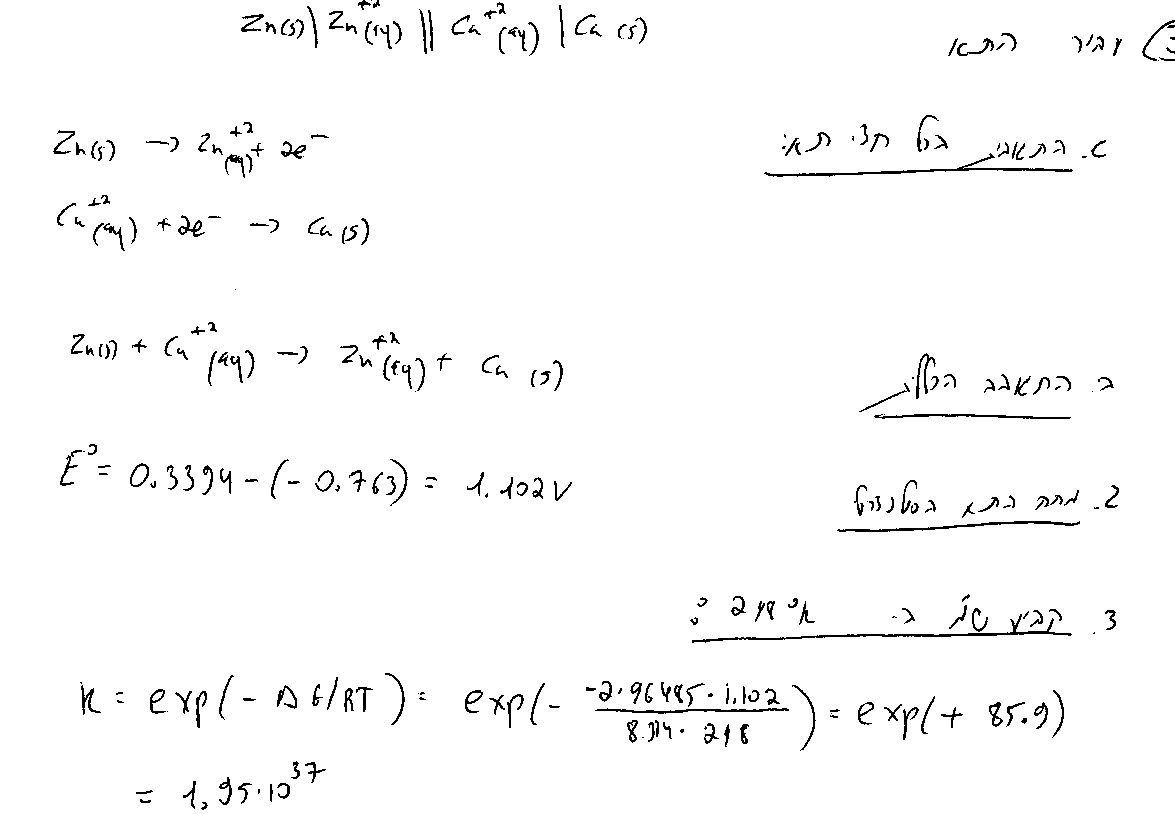 3) עבור התא Zn(s)|Zn⁺²(aq) || Cu⁺²(aq) | Cu (s)
בכל חצי תא:
Zn(s) → Zn⁺²(aq) + 2e⁻
Cu⁺²(aq) + 2e⁻ → Cu (s)
ב. הכללי
Zn(s) + Cu⁺²(aq) → Zn⁺²(aq) + Cu (s)
2. מתח התא הסטנדרטי
E° = 0.3394 - (- 0.763) = 1.102 V
3. קבוע שמ ב- 298 °K :
K = exp(- ΔG/RT) = exp(- -2·96485·1.102 / 8.314 · 298) = exp(+ 85.9)
= 1,95·10³⁷